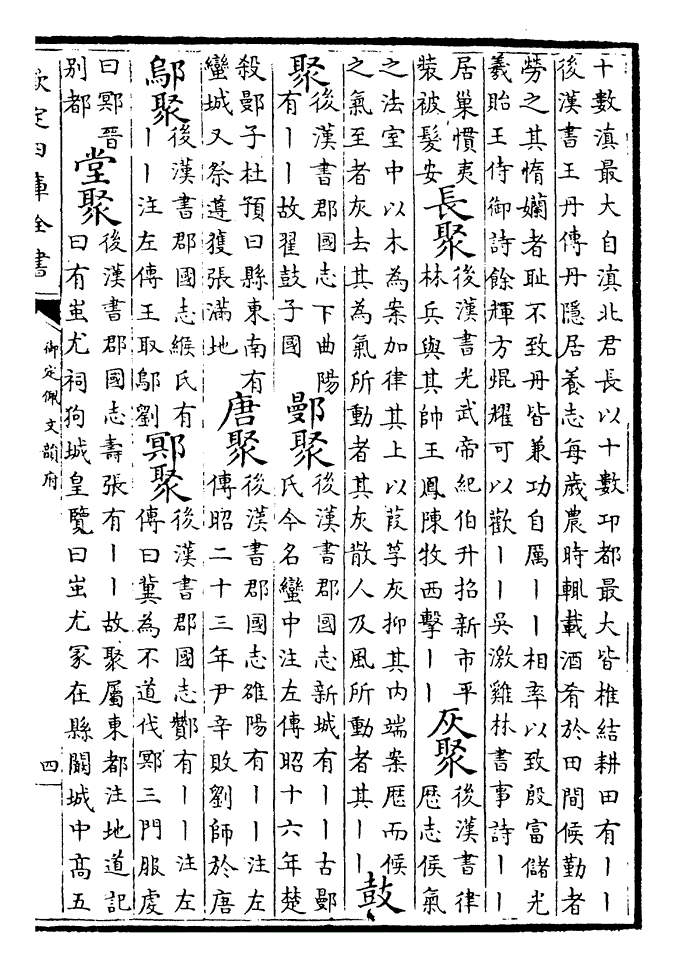 十數滇最大自滇北君長以十數卭都最大皆椎結耕田有丨丨
後漢書王丹傳丹隱居養志每歲農時輒載酒肴於田間候勤者
勞之其惰嬾者耻不致丹皆兼功自厲丨丨相率以致殷富儲光
羲貽王侍御詩餘輝方焜耀可以歡丨丨吳激雞林書事詩丨丨
居巢慣夷
裝被髮安
長聚
後漢書光武帝紀伯升招新市平
林兵與其帥王鳳陳牧西擊丨丨
灰聚
後漢書律
厯志候氣
之法室中以木為案加律其上以葭莩灰抑其内端案厯而候
之氣至者灰去其為氣所動者其灰散人及風所動者其丨丨
鼓
聚
後漢書郡國志下曲陽
有丨丨故翟鼓子國
鄤聚
後漢書郡國志新城有丨丨古鄤
氏今名蠻中注左傳昭十六年楚
殺鄤子杜預曰縣東南有
蠻城又祭遵獲張滿地
唐聚
後漢書郡國志雒陽有丨丨注左
傳昭二十三年尹辛敗劉師於唐
鄔聚
後漢書郡國志緱氏有
丨丨注左傳王取鄔劉
鄍聚
後漢書郡國志酇有丨丨注左
傳曰冀為不道代鄍三門服䖍
曰鄍晋
别都
堂聚
後漢書郡國志壽張有丨丨故聚屬東都注地道記
曰有蚩尤祠狗城皇覽曰蚩尤冢在縣闞城中髙五
欽定四庫全書
御定佩文韻府
四